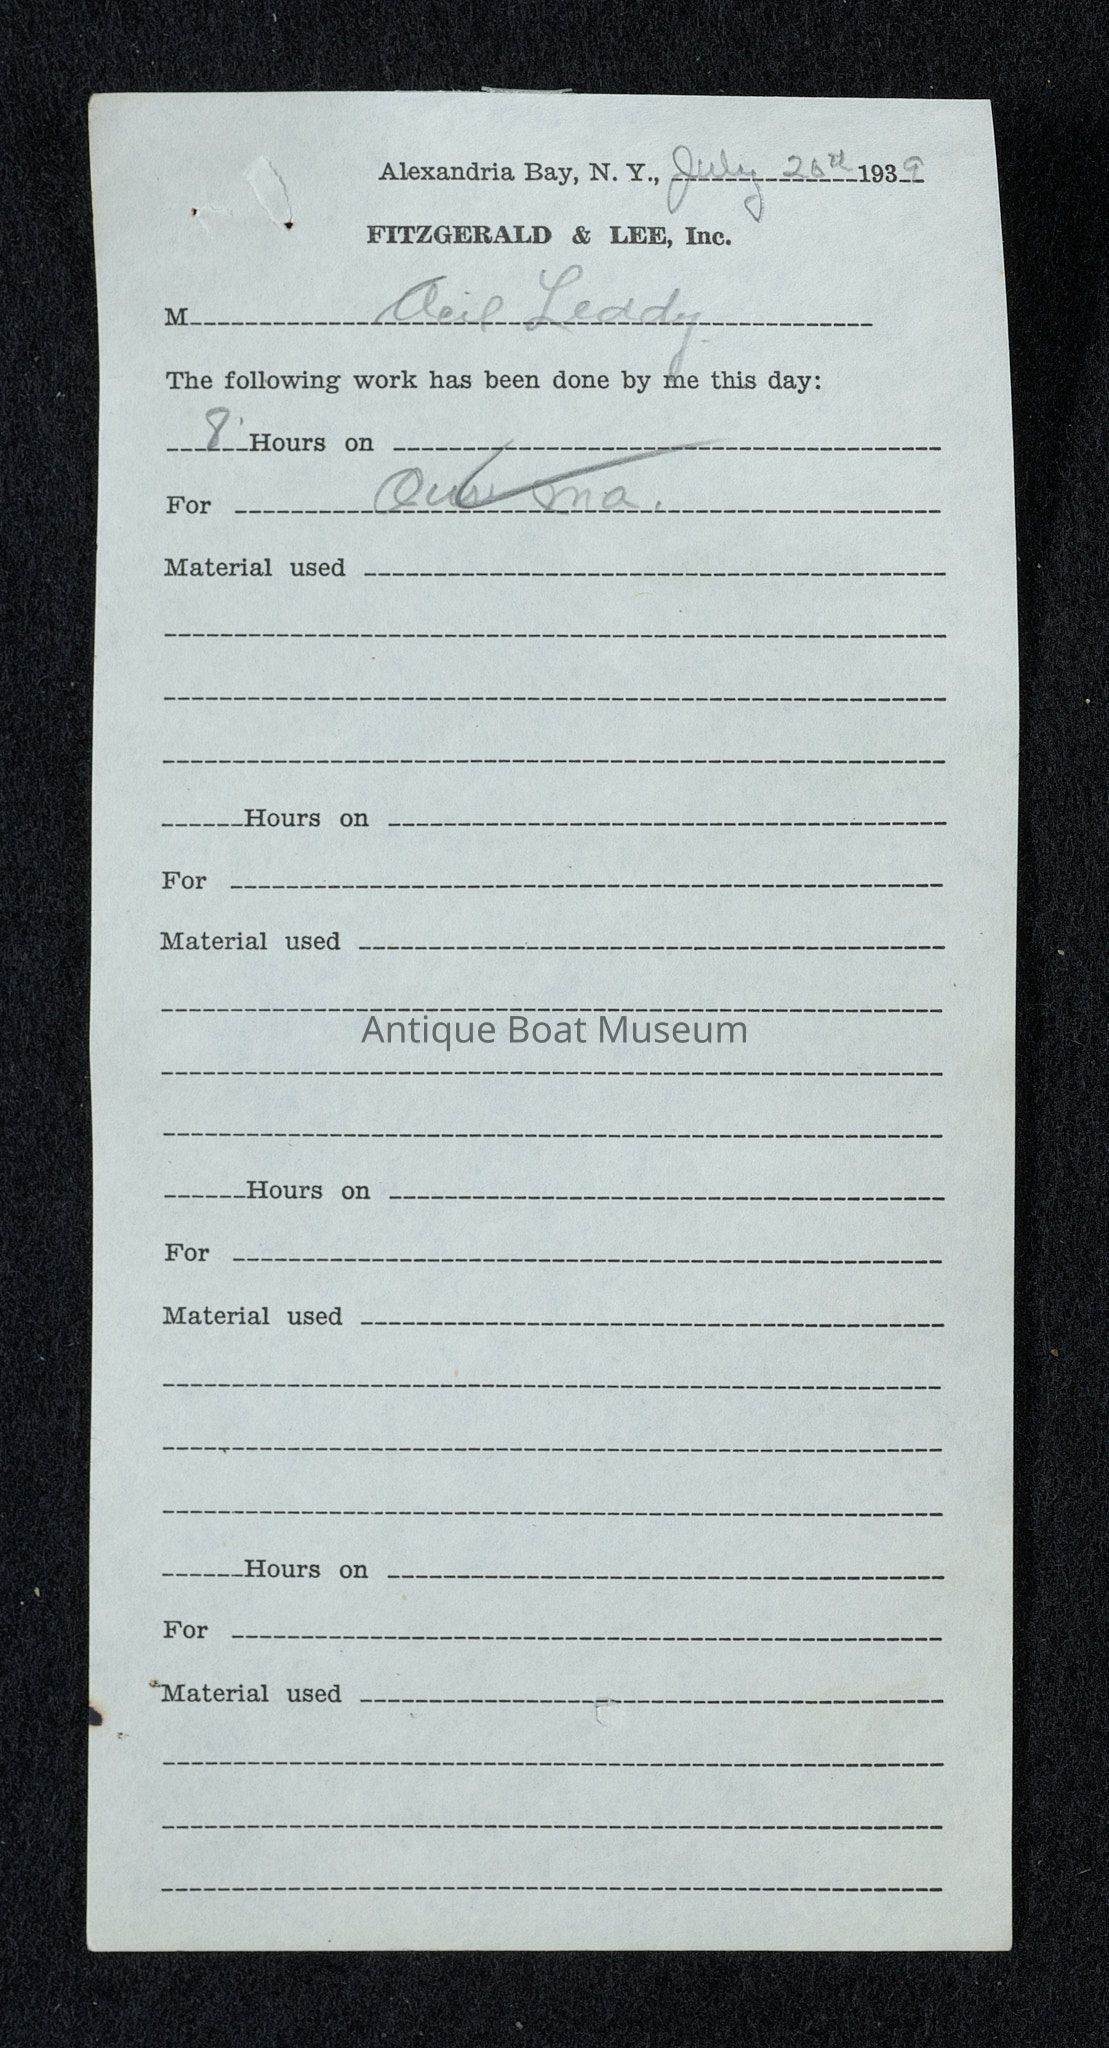 Alexandria Bay, N. Y., July 20th 1939
FITZGERALD & LEE, Inc.
M Leddy
The following work has been done by me this day:
8 Hours on
For Ma.
Material used
Hours on
For
Material used
Antique Boat Museum
Hours on
For
Material used
Hours on
For
Material used